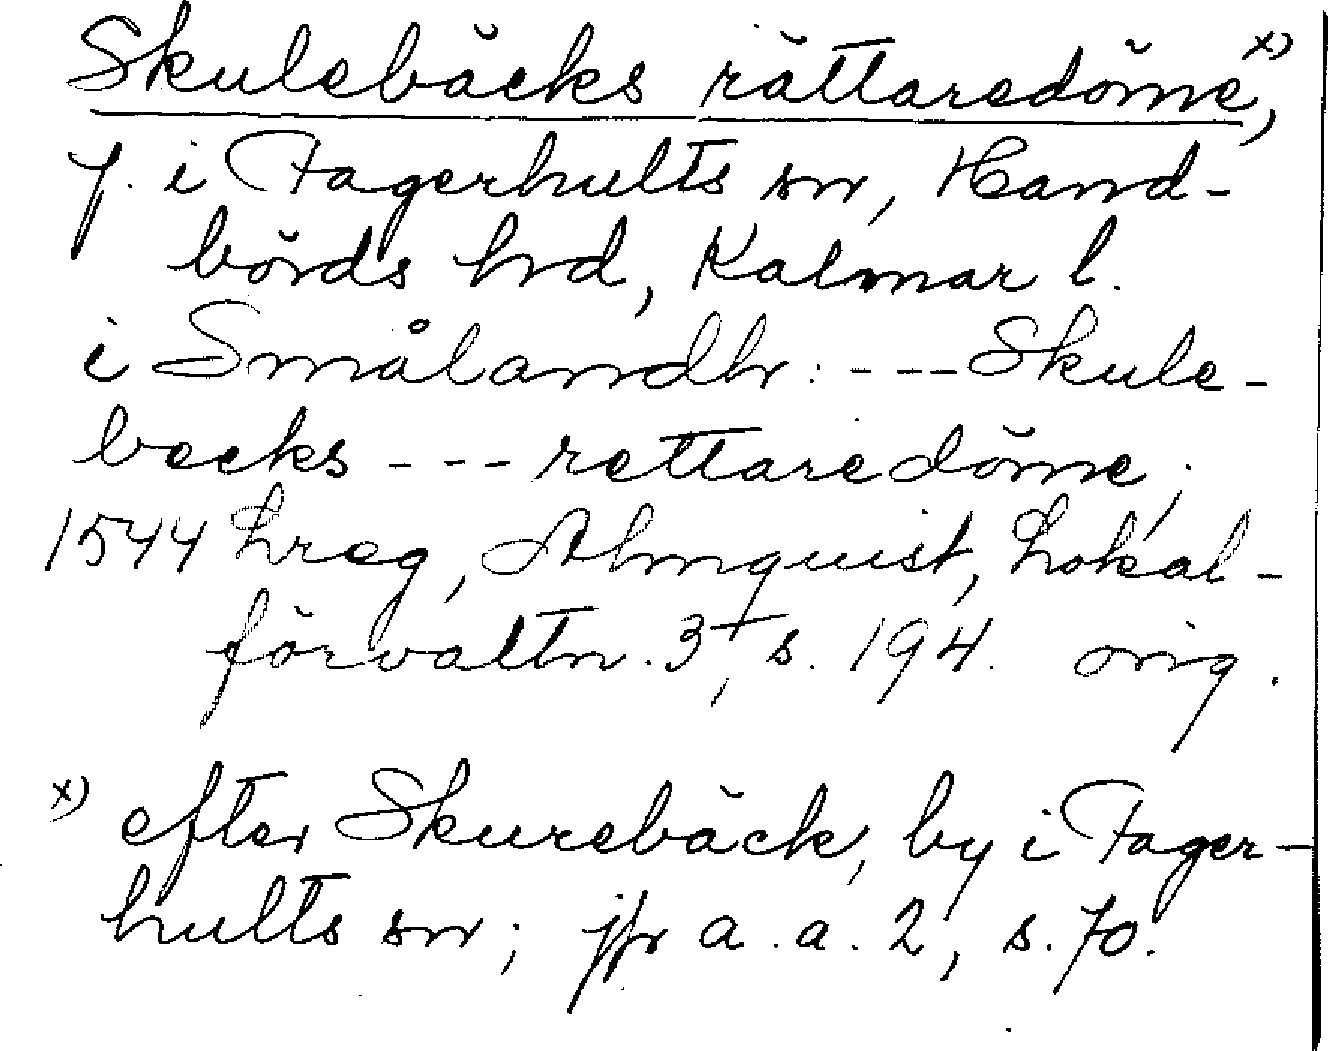 Skulebäcks rättaredöme,x)
f. i Fagerhults sn, Hand-
börds hrd, Kalmar l.
i Smålandh: --- Skule-
becks --- rettaredöme;
1544 Lreg, Almquist, Lokal-
förvaltn. 3, s. 194. orig.
x) efter Skurebäck, by i Fager-
hults sn; jfr a. a. 2, s. 70.